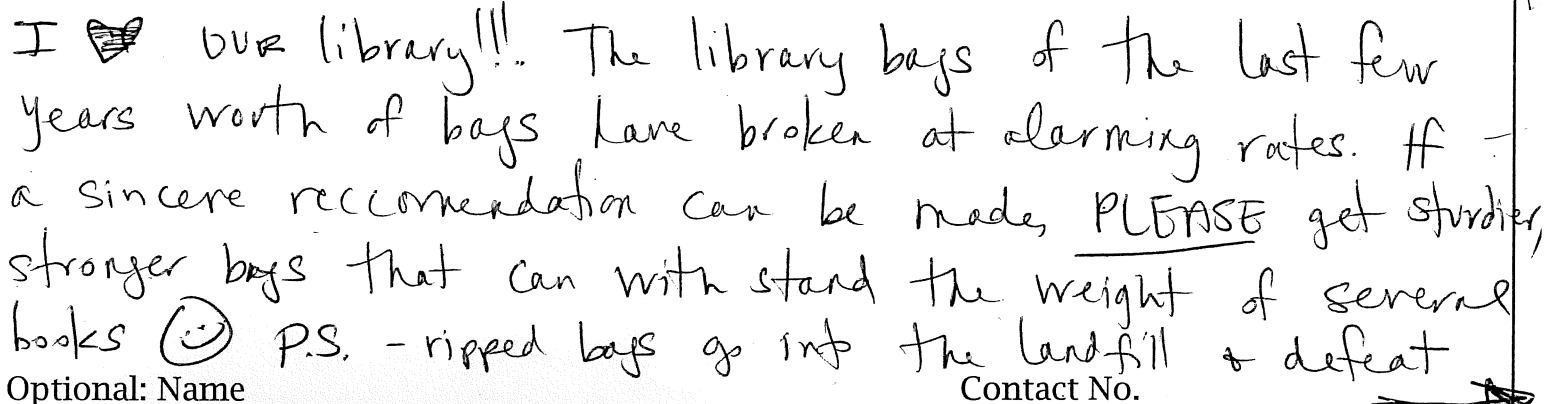 I ♥ OUR library!!!. The library bags of the last few
years worth of bags have broken at alarming rates. If
a sincere reccomendation can be made, PLEASE get sturdier,
stronger bags that can with stand the weight of several
books ☺ P.S. - ripped bags go into the landfill & defeat
Optional: Name Contact No.